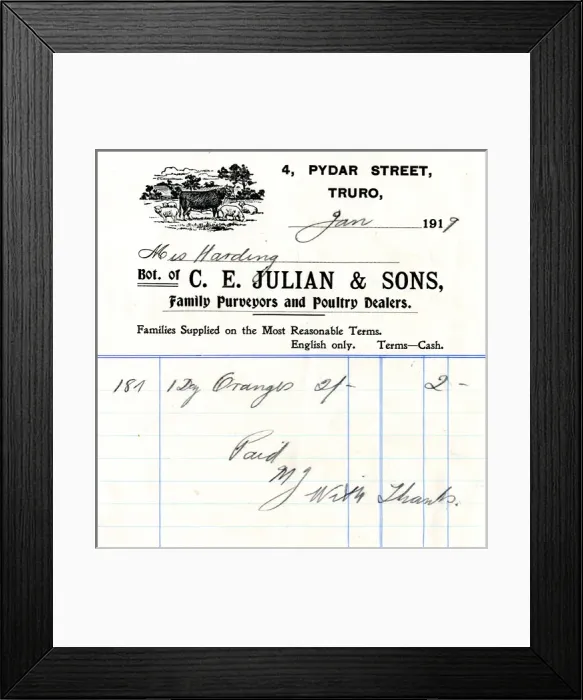 4, PYDAR STREET,
TRURO,
Jan 1919
Mrs Harding
Bot. of C. E. JULIAN & SONS,
Family Purveyors and Poultry Dealers.
Families Supplied on the Most Reasonable Terms.
English only. Terms—Cash.
1 Dz Oranges 2/- 2 -
Paid
MJ
With Thanks.